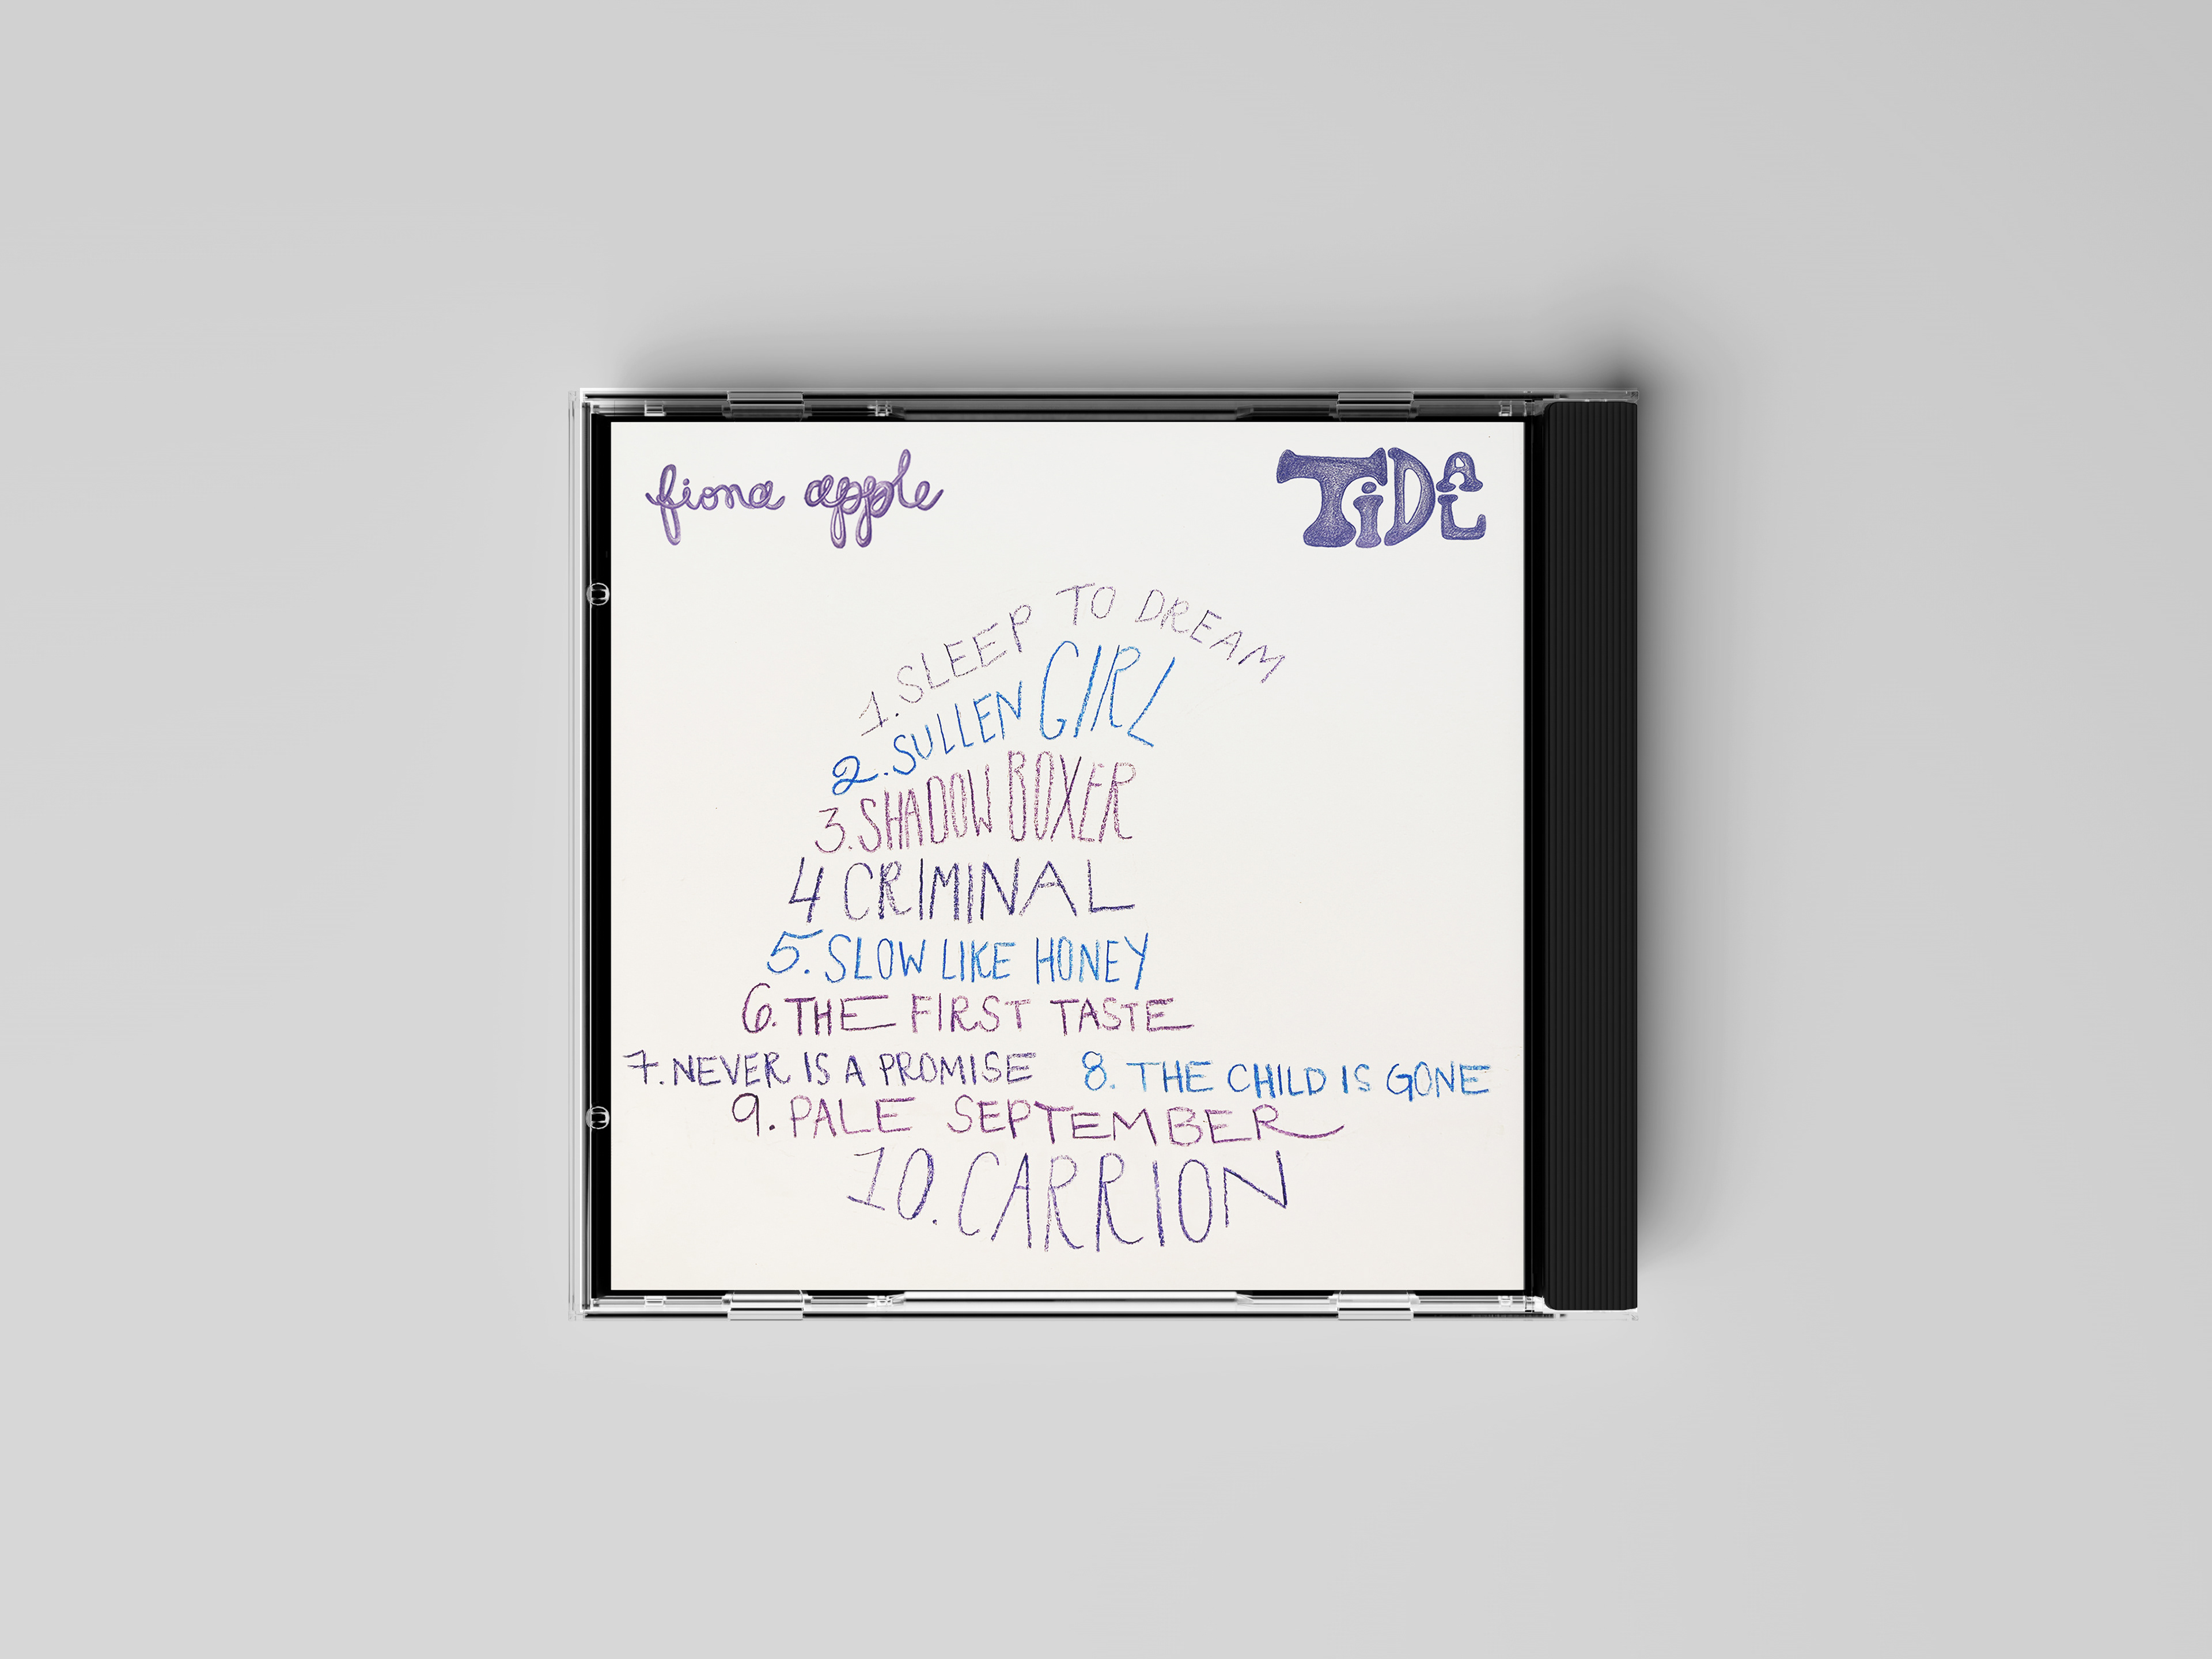 fiona apple
TiDAL
1. SLEEP TO DREAM
2. SULLEN GIRL
3. SHADOW BOXER
4 CRIMINAL
5. SLOW LIKE HONEY
6. THE FIRST TASTE
7. NEVER IS A PROMISE 8. THE CHILD IS GONE
9. PALE SEPTEMBER
10. CARRION